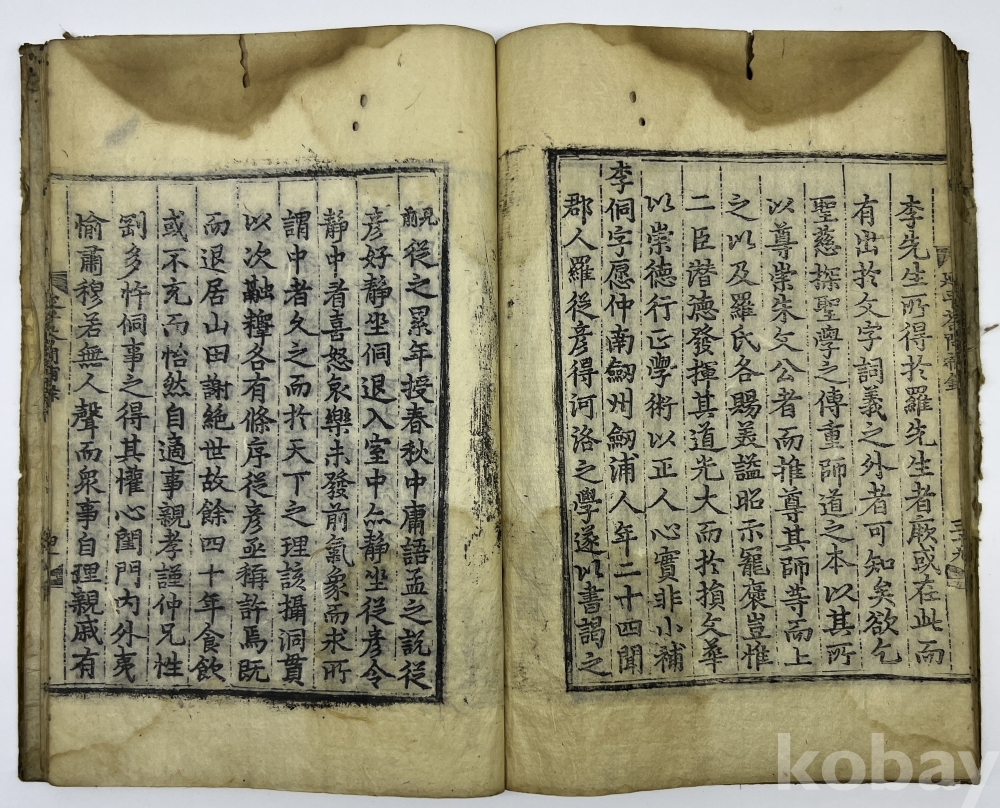 李先生所得於羅先生者厥或在此而
有出於文字詞義之外者可知矣欲乞
聖慈探聖學之傳重師道之本以其所
以尊崇朱文公者而推尊其師等而上
之以及羅氏各賜美謚昭示寵褒豈惟
二臣潜德發揮其道光大而於損文華
以崇德行正學術以正人心實非小補
李侗字愿仲南劔州劔浦人年二十四聞
郡人羅從彦得河洛之學遂以書謁之
見前
從之累年授春秋中庸語孟之説從
彦好静坐侗退入室中亦静坐從彦令
静中看喜怒哀樂未發前氣象而求所
謂中者久之而於天下之理該攝洞貫
以次融釋各有條序從彦亟稱許焉既
而退居山田謝絶世故餘四十年食飲
或不充而怡然自適事親孝謹仲兄性
剛多忤侗事之得其懽心閨門内外夷
愉肅穆若無人聲而衆事自理親戚有
kobay